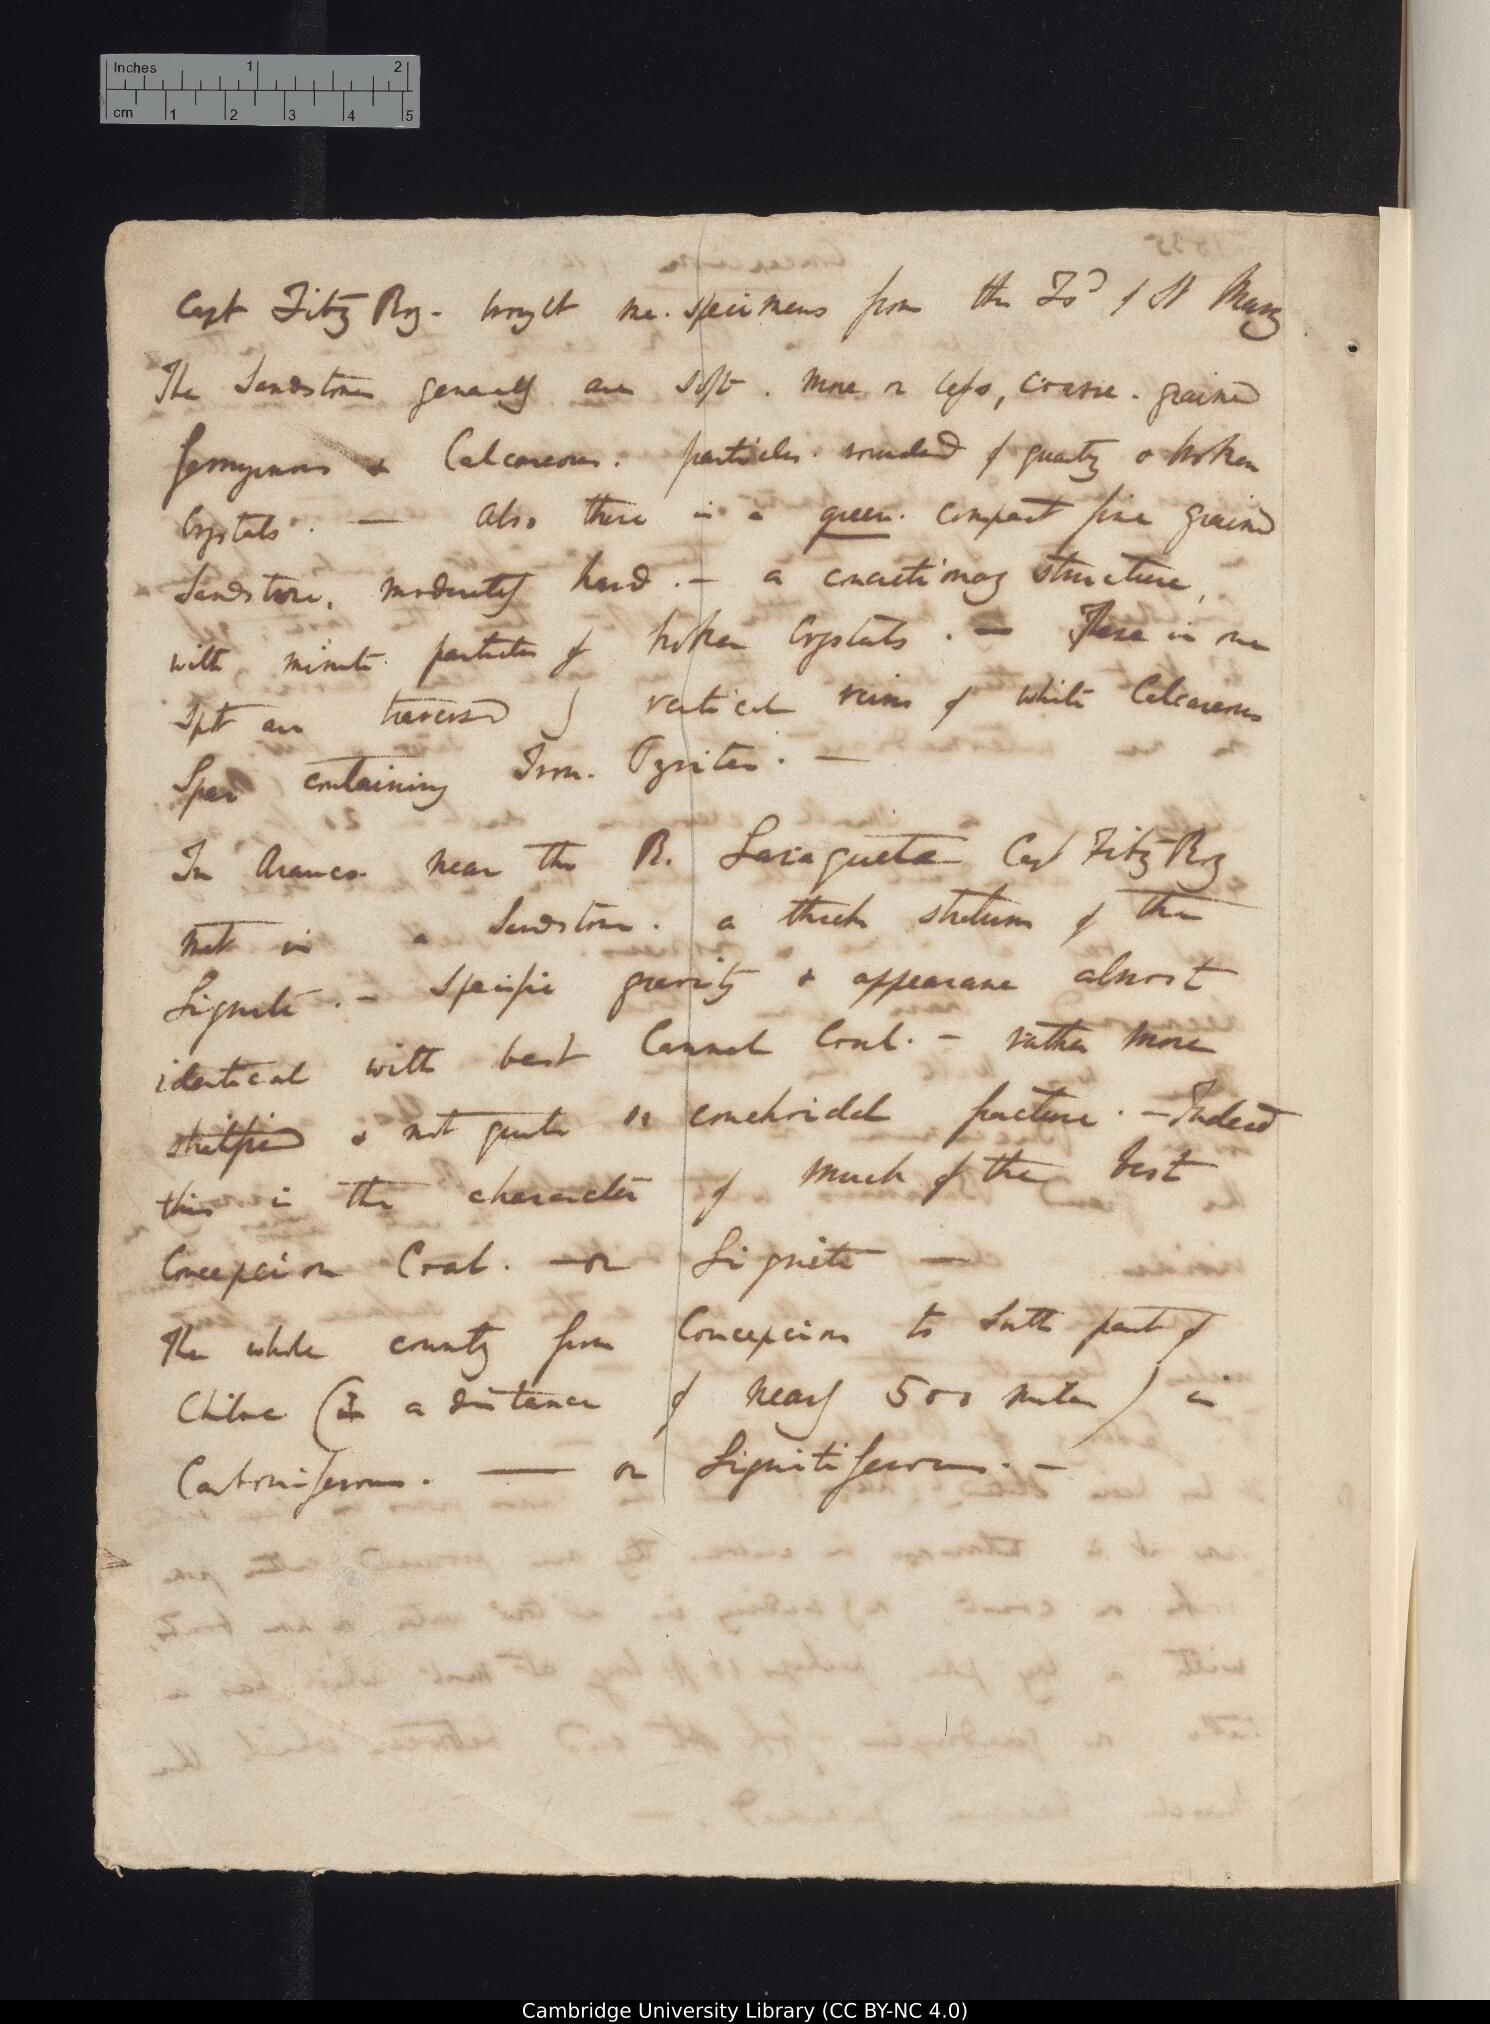 Inches 1 2
cm 1 2 3 4 5
Capt FitzRoy. brought me. specimens from the Isd of St Mary
The Sandstones generally are soft. more or less, coarse. grained
ferruginous & Calcareous. particles. rounded of quartz & broken
Crystals. — Also there is a green. compact fine grained
Sandstone, moderately hard. — a concretionary structure,
with minute particles of broken Crystals. — These in one
spt are traversed by vertical veins of white Calcareous
Spar containing Iron. Pyrites. —
In Arauco. near the R. Laraqueta Capt FitzRoy
met in a Sandstone. a thick stratum of the
Lignite. — Specific gravity & appearance almost
identical with best Cannel Coal. — rather more
& not quite so conchoidal fracture. — Indeed
this is the character of much of the best
Concepcion Coal. — or Lignite —
The whole country from Concepcion to South part of
Chiloe ( a distance of nearly 500 miles) is
Carboniferous. — or Lignitiferous. —
Cambridge University Library (CC BY-NC 4.0)